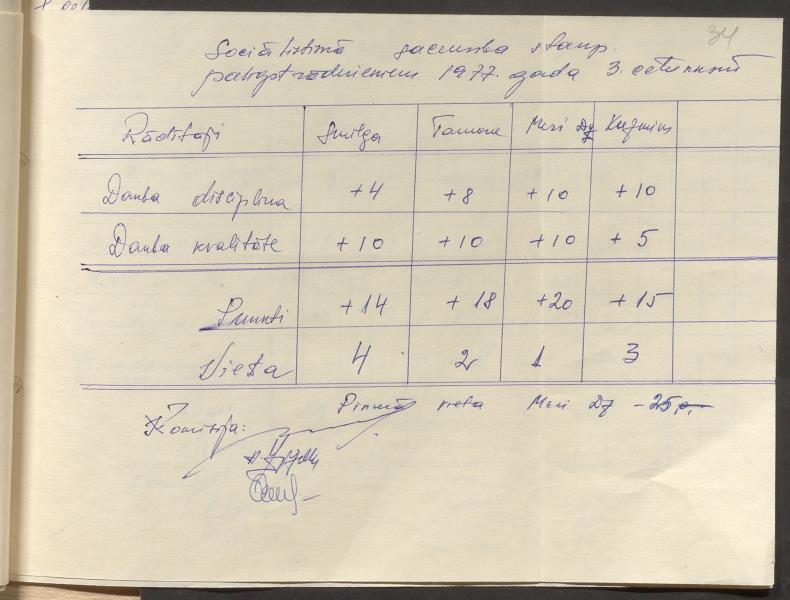 34
Sociālistiskā sacensība starp
palīgstrādniekiem 1977. gada 3. ceturksnī
Rādītāji Smilga Tamone Meri Dz Kuzmins
Darba disciplīna +4 +8 +10 +10
Darba kvalitāte +10 +10 +10 +5
Punkti +14 +18 +20 +15
Vieta 4 2 1 3
Pirmā vieta Meri Dz - 25,-
Komisija: